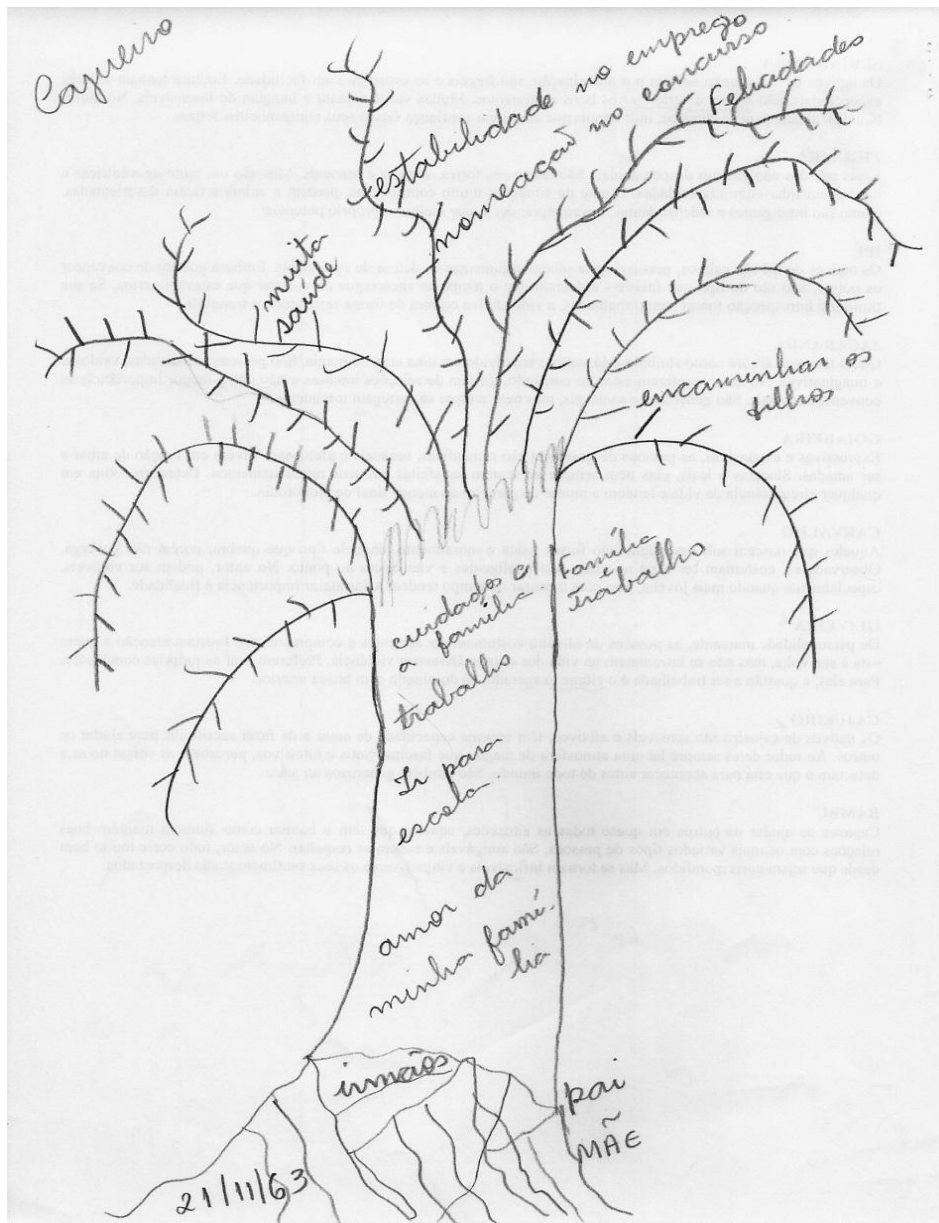 Cajueiro
estabilidade no emprego
nomeação no concurso
Felicidades
muita
saúde
encaminhar os
filhos
cuidados c/
família
trabalho
família
trabalho
Ir para
escola
amor da
minha famí-
lia
irmãos
pai
MÃE
21/11/63